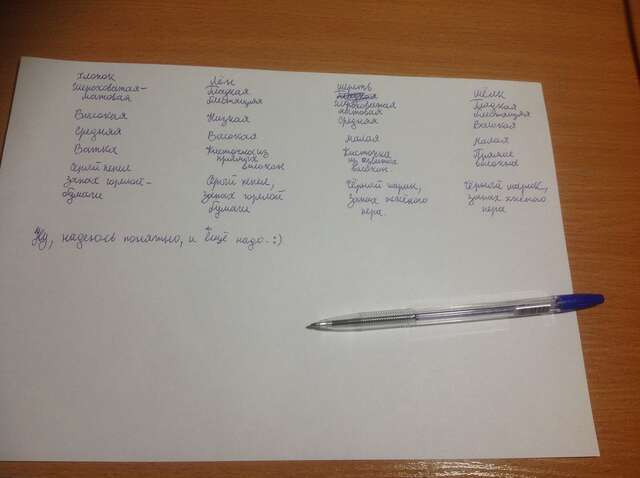 Хлопок
Шероховатая-
матовая
Высокая
Средняя
Ватка
Серый пепел
запах горелой-
бумаги
Лён
Гладкая
блестящая
Низкая
Высокая
Кисточка из
прямых
волокон
Серый пепел,
запах горелой
бумаги
Шерсть
Шероховатая
матовая
Средняя
Малая
Кисточка
из извитых
волокон.
Чёрный шарик,
запах жжёного
пера.
Шёлк
Гладкая
блестящая
Высокая
Малая
Прямые
волокна
Чёрный шарик,
запах жжёного
пера
Ну, надеюсь понятно, и ещё надо. :)